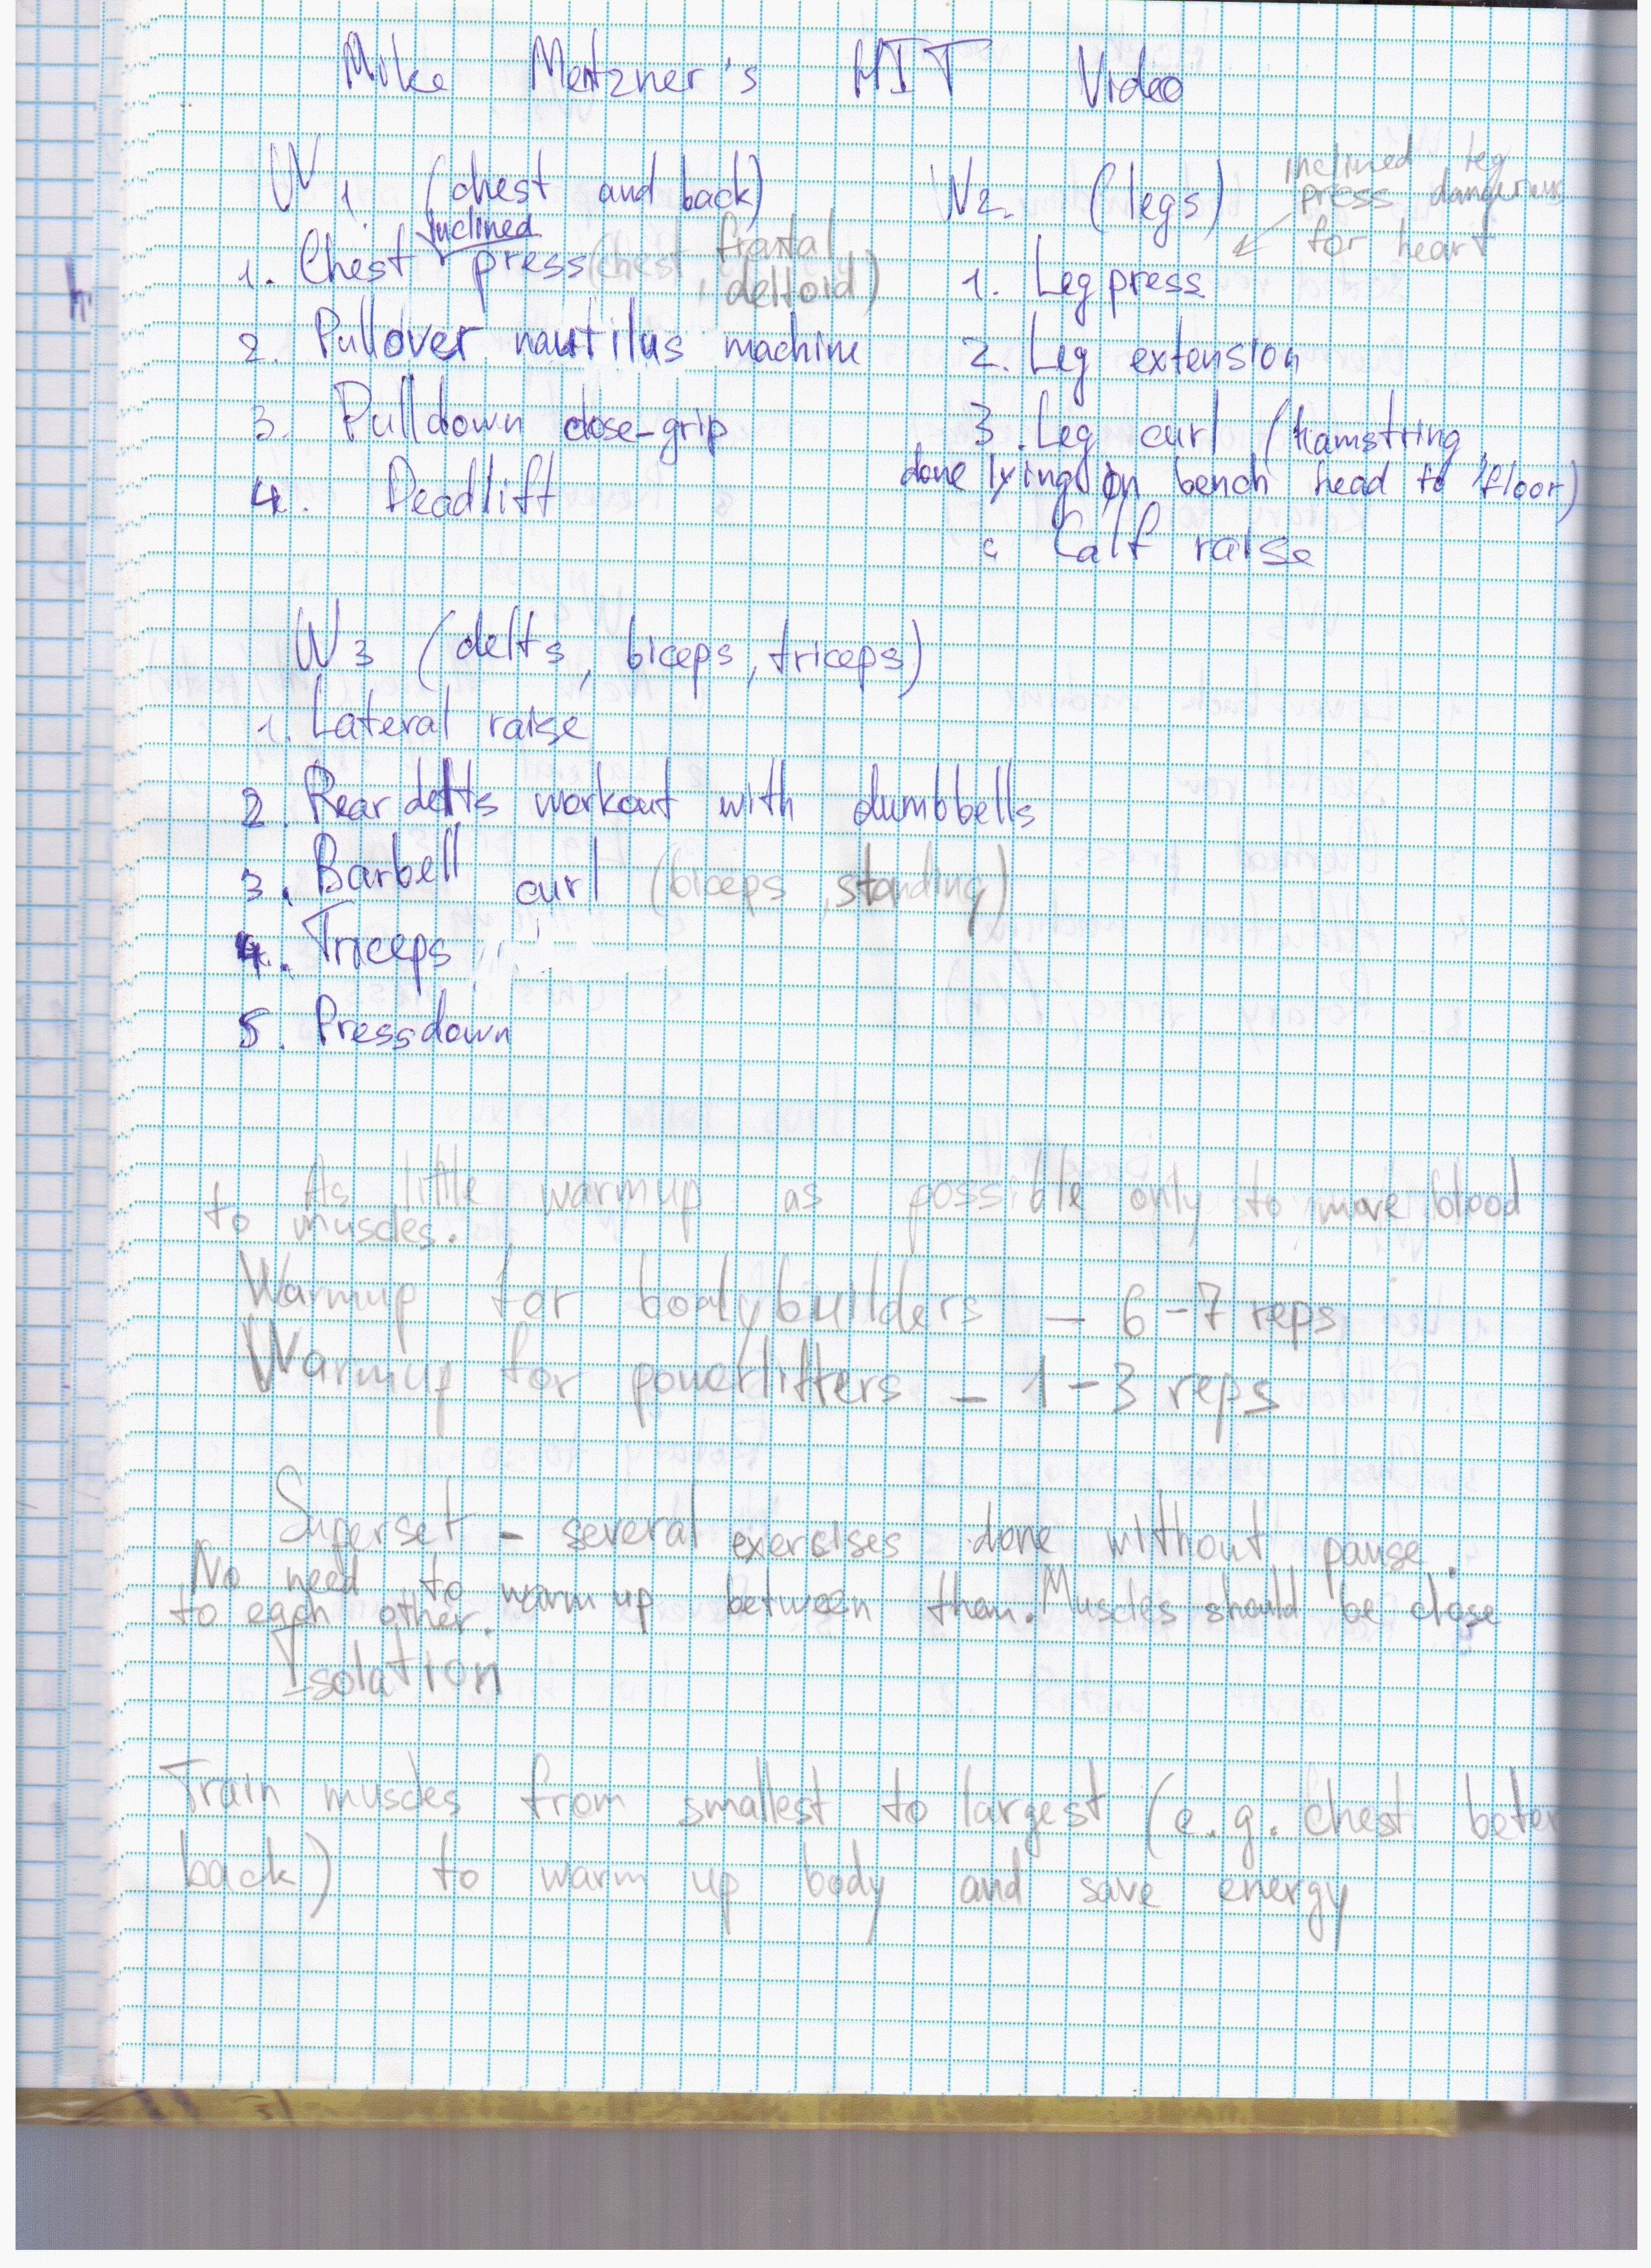 Mike Mentzner's HIT Video
W1. (chest and back)
1. Chest Inclined press (chest, frontal deltoid)
2. Pullover nautilus machine
3. Pulldown close-grip
4. Deadlift
W2. (legs)
inclined leg
press dangerous
for heart
1. Leg press
2. Leg extension
3. Leg curl (hamstring,
done lying on bench head to floor)
Calf raise
W3 (delts, biceps, triceps)
1. Lateral raise
2. Rear delts workout with dumbbells
3. Barbell curl (biceps, standing)
4. Triceps
5. Pressdown
As little warmup as possible only to move blood
to muscles.
Warmup for bodybuilders – 6-7 reps
Warmup for powerlifters – 1-3 reps
Superset - several exersises done without pause.
No need to warm up between them. Muscles should be close
to each other.
Isolation
Train muscles from smallest to largest (e.g. chest
back) to warm up body and save energy